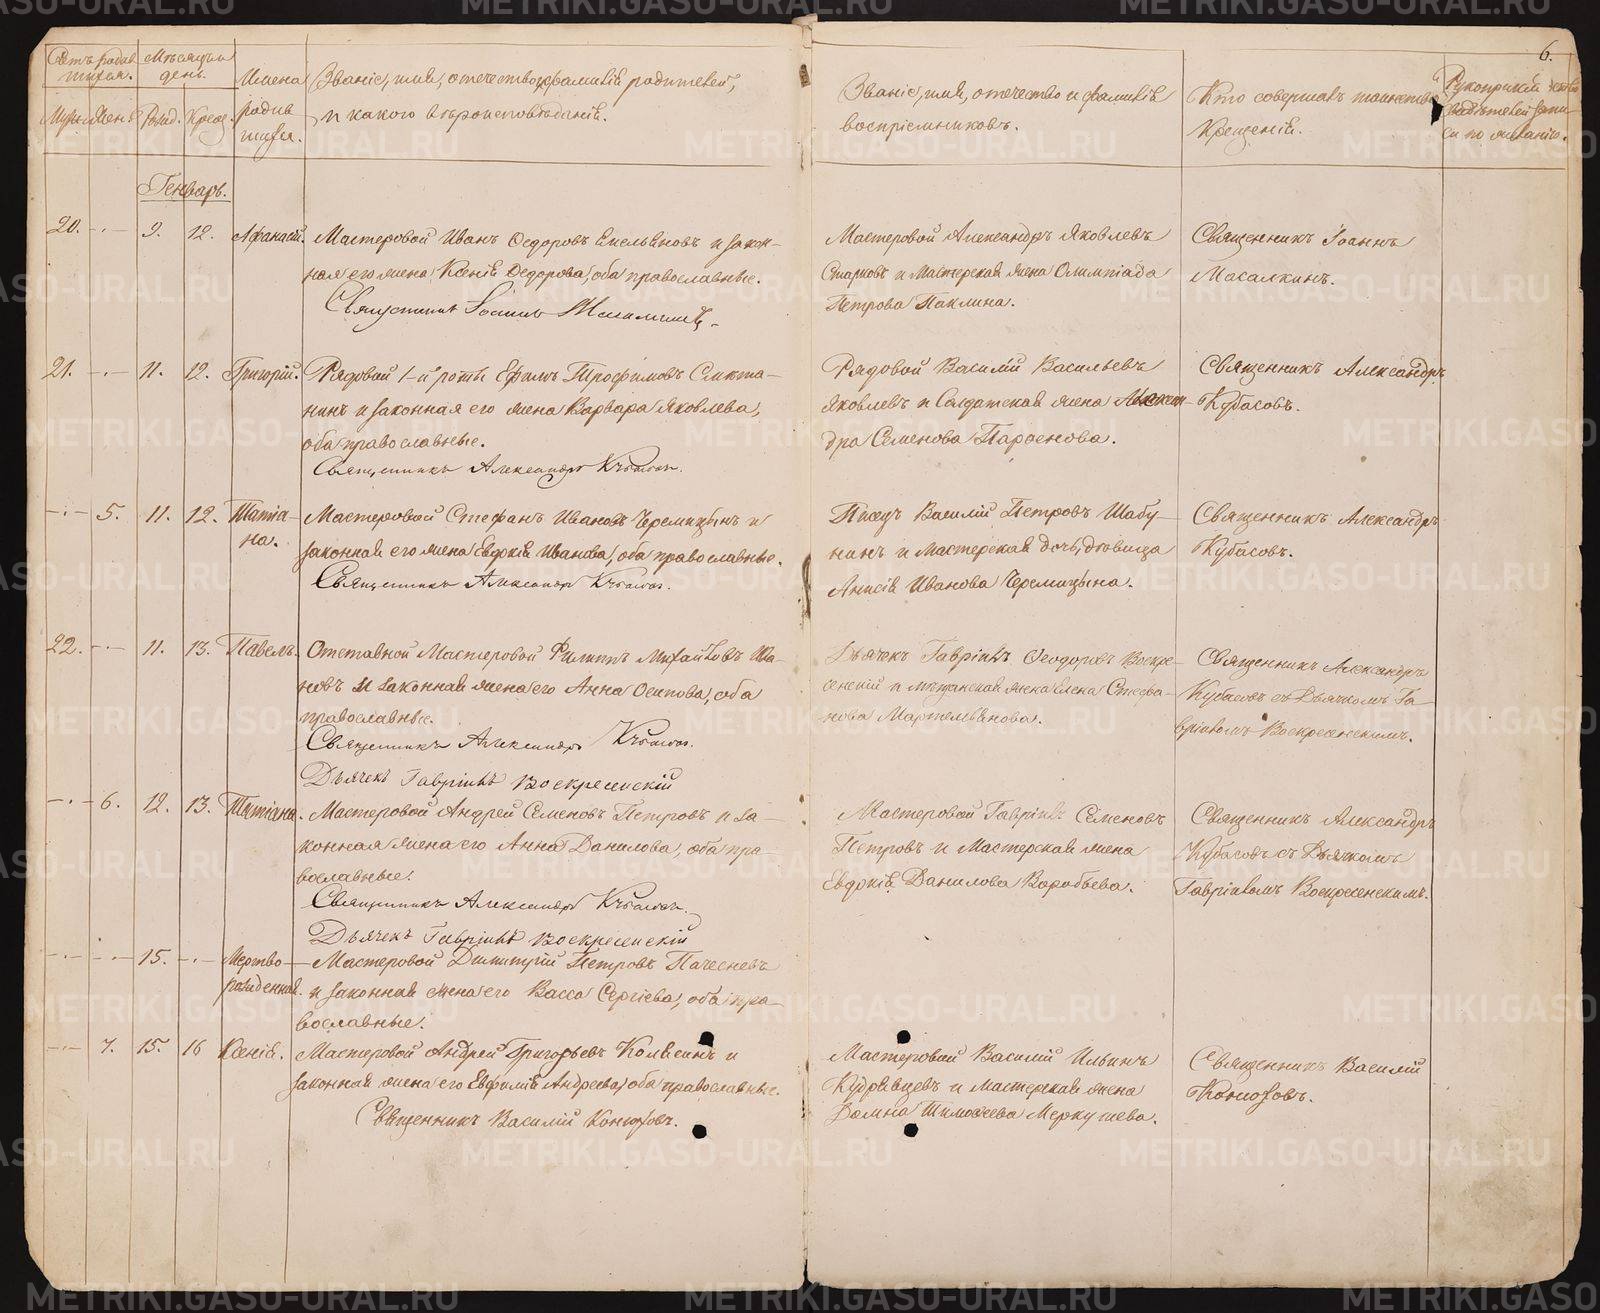 6.
Счетъ родив
шихся.
Мѣсяцъ и
день.
Имена
родив
шихся.
Званіе, имя, отечество и фамилія родителей,
и какого вѣроисповѣданія.
Званіе, имя, отечество и фамилія
воспріемниковъ.
Кто совершалъ таинство
Крещенія.
Рукоприкладство
свидѣтелей запи
си по желанію.
Рожд. Крещ.
Генварь.
20. -·- 9. 12. Афанасій. Мастеровой Иванъ Ѳедоровъ Емельяновъ и закон-
ная его жена Ксенія Ѳедорова, оба православные.
Священникъ Іоаннъ Масалкинъ.
Мастеровой Александръ Яковлевъ
Старковъ и Мастерская жена Олимпіада
Петрова Паклина.
Священникъ Іоаннъ
Масалкинъ.
21. -·- 11. 12. Григорій. Рядовой 1-й роты Ефимъ Трофимовъ Смкта-
нинъ и законная его жена Варвара Яковлева,
оба православные.
Священникъ Александръ Кубасовъ.
Рядовой Василій Васильевъ
Яковлевъ и Солдатская жена Алексан-
дра Семенова Парѳенова.
Священникъ Александръ
Кубасовъ.
-·- 5. 11. 12. Татіа-
на.
Мастеровой Стефанъ Ивановъ Черемицынъ и
законная его жена Евдокія Иванова, оба православные.
Священникъ Александръ Кубасовъ.
Писецъ Василій Петровъ Шабу-
нинъ и Мастерская дочь, дѣвица
Анисія Иванова Черемицына.
Священникъ Александръ
Кубасовъ.
22. -·- 11. 13. Павелъ. Отставной Мастеровой Филиппъ Михайловъ Ива-
новъ и законная жена его Анна Осипова, оба
православные.
Священникъ Александръ Кубасовъ.
Дьячекъ Гавріилъ Воскресенскій
Дьячекъ Гавріилъ Ѳеодоровъ Воскре-
сенскій и мѣщанская жена Елена Стефа-
нова Мартемьянова.
Священникъ Александръ
Кубасовъ съ Дьячкомъ Га-
вріиломъ Воскресенскимъ.
-·- 6. 12. 13. Татіана. Мастеровой Андрей Семеновъ Петровъ и за-
конная жена его Анна Данилова, оба пра-
вославные.
Священникъ Александръ Кубасовъ.
Дьячекъ Гавріилъ Воскресенскій
Мастеровой Гавріилъ Семеновъ
Петровъ и Мастерская жена
Евдокія Данилова Воробьева.
Священникъ Александръ
Кубасовъ съ Дьячкомъ
Гавріиломъ Воскресенскимъ.
-·- -·- 15. -·- Мертво-
рожденная.
Мастеровой Димитрій Петровъ Пачесневъ
и законная жена его Васса Сергіева, оба пра-
вославные.
-·- 7. 15. 16 Ксенія. Мастеровой Андрей Григорьевъ Колясинъ и
законная жена его Евфимія Андреева, оба православные.
Священникъ Василій Конюховъ.
Мастеровый Василій Ильинъ
Кудрявцевъ и мастерская жена
Домна Тимоѳеева Меркушева.
Священникъ Василій
Конюховъ.
METRIKI.GASO-URAL.RU